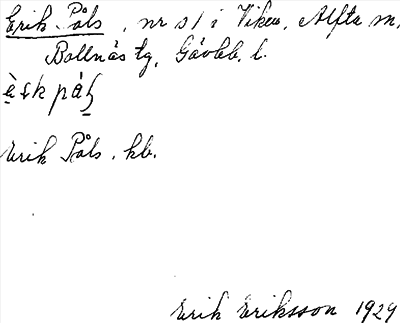 Erik Påls, nr 51 i Viken, Alfta sn,
Bollnäs tg, Gävleb. l.
Erik Påls. kb.
Erik Eriksson 1929